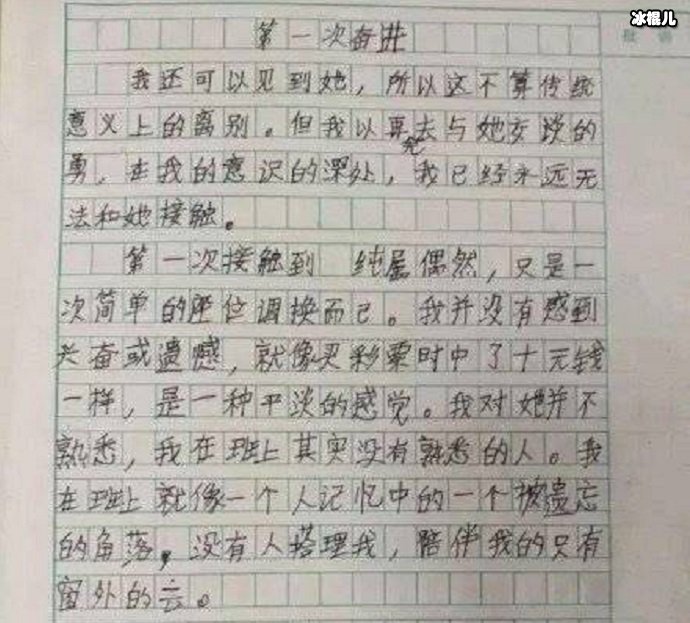 冰棍儿
批语
第一次奋进
我还可以见到她，所以这不算传统
意义上的离别。但我以再去与她交谈的
死
勇，在我的意识的深处，我已经永远无
法和她接触。
第一次接触到 纯属偶然，只是一
次简单的座位调换而已。我并没有感到
兴奋或遗憾，就像买彩票时中了十元钱
一样，是一种平淡的感觉。我对她并不
熟悉，我在班上其实没有熟悉的人。我
在班上就像一个人记忆中的一个被遗忘
的角落，没有人搭理我，陪伴我的只有
窗外的云。